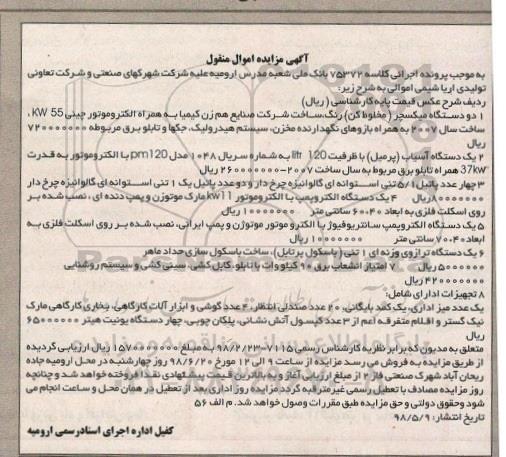 آگهی مزایده اموال منقول
به موجب پرونده اجرائی کلاسه ۷۵۳۷۲ بانک ملی شعبه مدرس ارومیه علیه شرکت شهرکهای صنعتی و شرکت تعاونی
تولیدی اریا شیمی اموالی به شرح زیر:
ردیف شرح عکس قیمت پایه کارشناسی (ریال)
۱ دو دستگاه میکسچر (مخلوط کن) رنگ،ساخت شرکت صنایع هم زن کیمیا به همراه الکتروموتور چینی KW 55،
ساخت سال ۲۰۰۷ به همراه بازوهای نگهدارنده مخزن، سیستم هیدرولیک، جکها و تابلو برق مربوطه ۷۲۰۰۰۰۰۰۰
ریال
۲ یک دستگاه آسیاب (پرمیل) با ظرفیت litr 120 به شماره سریال ۱۰۴۸ مدل pm120 با الکتروموتور به قدرت
37kw همراه تابلو برق مربوط به سال ساخت ۲۰۰۷-۲۶۰۰۰۰۰۰۰ ریال
۳ چهار عدد پاتیل ۵/۱ تنی استوانه ای گالوانیزه چرخ دار و دو عدد پاتیل یک ۱ تنی استوانه ای گالوانیزه چرخ دار
ریال ۴ یک دستگاه الکتروپمپ با الکتروموتور kw11 مارک موتوژن و پمپ دنده ای ، نصب شده بر
روی اسکلت فلزی به ابعاد ۶۰،۴۰ سانتی متر ۱۰۰۰۰۰۰۰ ریال
۵ یک دستگاه الکتروپمپ سانتریوفیوژ با الکترو موتور موتوژن و پمپ ایرانی، نصب شده بر روی اسکلت فلزی به
ابعاد ۷۰،۴۰ سانتی متر ۱۰۰۰۰۰۰۰ ریال
۶ یک دستگاه ترازوی وزنه ای ۱ تنی (باسکول پرتابل)، ساخت باسکول سازی حداد ماهر
۵۰۰۰۰۰۰ ریال ۷ امتیاز انشعاب برق ۹۰ کیلو وات با تابلو، کابل کشی، سینی کشی و سیستم روشنایی
۴۲۰۰۰۰۰۰۰ ریال
۸ تجهیزات اداری شامل:
یک عدد میز اداری، یک کمد بایگانی، ۲۰ عدد صندلی انتظار، ۴ عدد گوشی و ابزار آلات کارگاهی، بخاری کارگاهی مارک
نیک گستر و اقلام متفرقه اعم از ۳ عدد کپسول آتش نشانی، پلکان چوبی، چهار دستگاه یونیت هیتر ۶۵۰۰۰۰۰۰
ریال
متعلق به مدیون که برابر نظریه کارشناس رسمی ۷۱۱۵-۹۸/۲/۲۳ به مبلغ ۱۵۷۰۰۰۰۰۰۰ ریال ارزیابی گردیده
از طریق مزایده به فروش می رسد مزایده از ساعت ۹ الی ۱۲ مورخ ۹۸/۶/۲۰ روز چهارشنبه در محل ارومیه جاده
ریحان آباد شهرک صنعتی فاز ۲ از مبلغ ارزیابی آغاز و به بالاترین قیمت پیشنهادی نقدا فروخته خواهد شد و چنانچه
روز مزایده مصادف با تعطیل رسمی غیرمترقبه گردد مزایده روز اداری بعد از تعطیل در همان محل و ساعت انجام می
شود وحقوق دولتی و حق مزایده طبق مقررات وصول خواهد شد. م الف ۵۶
تاریخ انتشار: ۹۸/۵/۹
کفیل اداره اجرای اسناد رسمی ارومیه